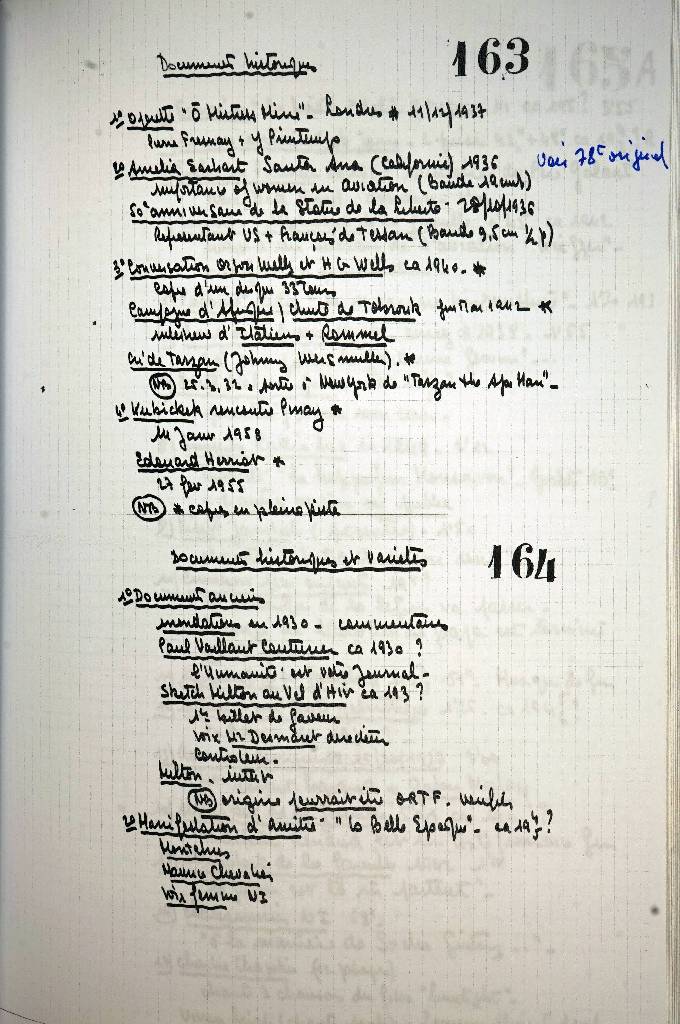 Documents historiques 163
1º Opérette "Ô Mistress Mine" - Londres * 11/12/1937
Pierre Fresnay + Y Printemps
2º Amelia Earhart Santa Ana (Californie) 1936 voir 78t original
importance of women in Aviation (Bande 19 cm/s)
50e anniversaire de la Statue de la Liberté - 28/10/1936
Représentant US + français de Tessan (Bande 9,5 cm ½ p)
3º Conversation Orson Wells et H G Wells ca 1940. *
copie d'un disque 33 tours
Campagne d'Afrique / chute de Tobrouk 1942 *
intérieur d'Italiens + Rommel
Cri de Tarzan (Johnny Weismuller). *
NB 25.3.32. sortie à New York de "Tarzan the Ape Man" -
4º Kubichek rencontre Pinay *
14 Janv 1958
Edouard Herriot *
27 fev 1955
NB * copies en pleine piste
Documents historiques et Variétés 164
1º Documents anciens
inondations en 1930 - commentaires
Paul Vaillant Couturier ca 1930 ?
l'Humanité est votre Journal -
Sketch Milton au Vel d'Hiv ca 193 ?
1er billet de faveur
voix Mr Desmaret directeur
Controleur.
Milton.
NB origine pourrait être ORTF.
2º Manifestation d'amitié "la Belle Epoque" - ca 19 ?
Montehus
Maurice Chevalier
voix femme NI